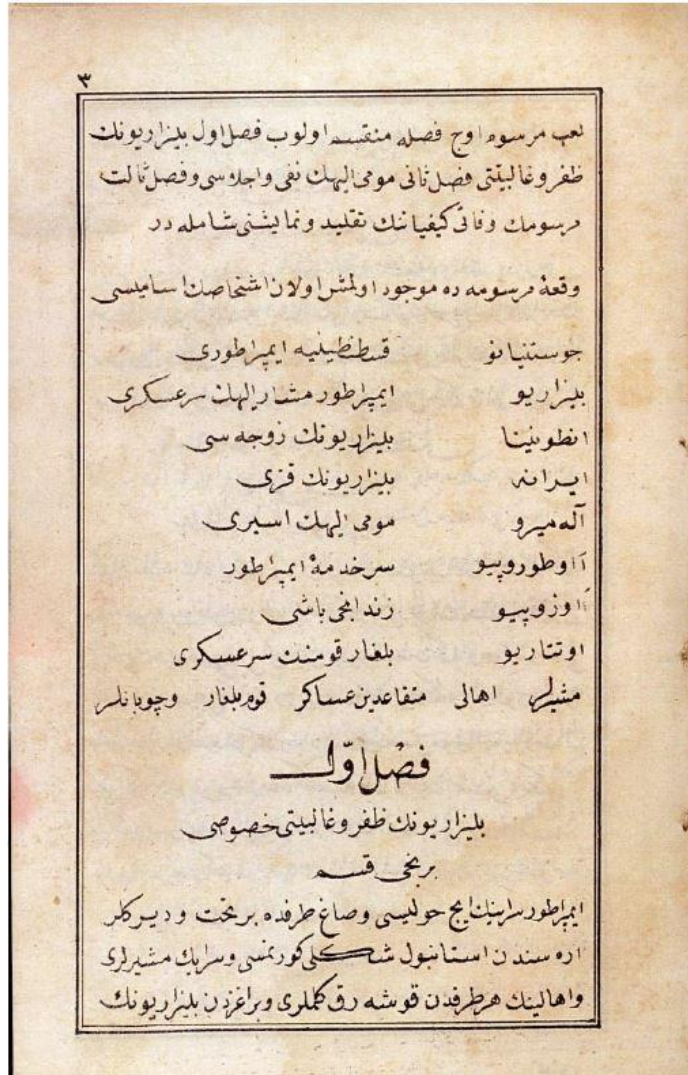 ٣
لعب مرسوم اوچ فصله منقسم اولوب فصل اول بليزاريونك
ظفر و غالبيتى فصل ثانى مومى اليهك نفى و اجلاسى و فصل ثالث
مرسومك وفاتى كيفياتنك تقليد و نمايشنى شامله در
وقعهٔ مرسومه ده موجود اولمش اولان اشخاصك اساميسى
جوستنيانو قسطنطينيه ايمپراطورى
بليزاريو ايمپراطور مشار اليهك سرعسكرى
انطونينا بليزاريونك زوجه سى
ايرانه بليزاريونك قزى
آله ميرو مومى اليهك اسيرى
آاوطوروپيو سر خدمهٔ ايمپراطور
آاوزوپيو زندانجى باشى
اوتتاريو بلغار قومنك سرعسكرى
مشيرلر اهالى متقاعدين عساكر قوم بلغار و چوبانلر
فصل اوّل
بليزاريونك ظفر و غالبيتى خصوصى
برنجى قسم
ايمپراطور سراينك ايچ حوليسى و صاغ طرفده بر تخت و ديركلر
اره سندن استانبول شكلى كورنمسى و سرايك مشيرلرى
و اهالينك هر طرفدن قوشه رق كلملرى و بر اغزدن بليزاريونك